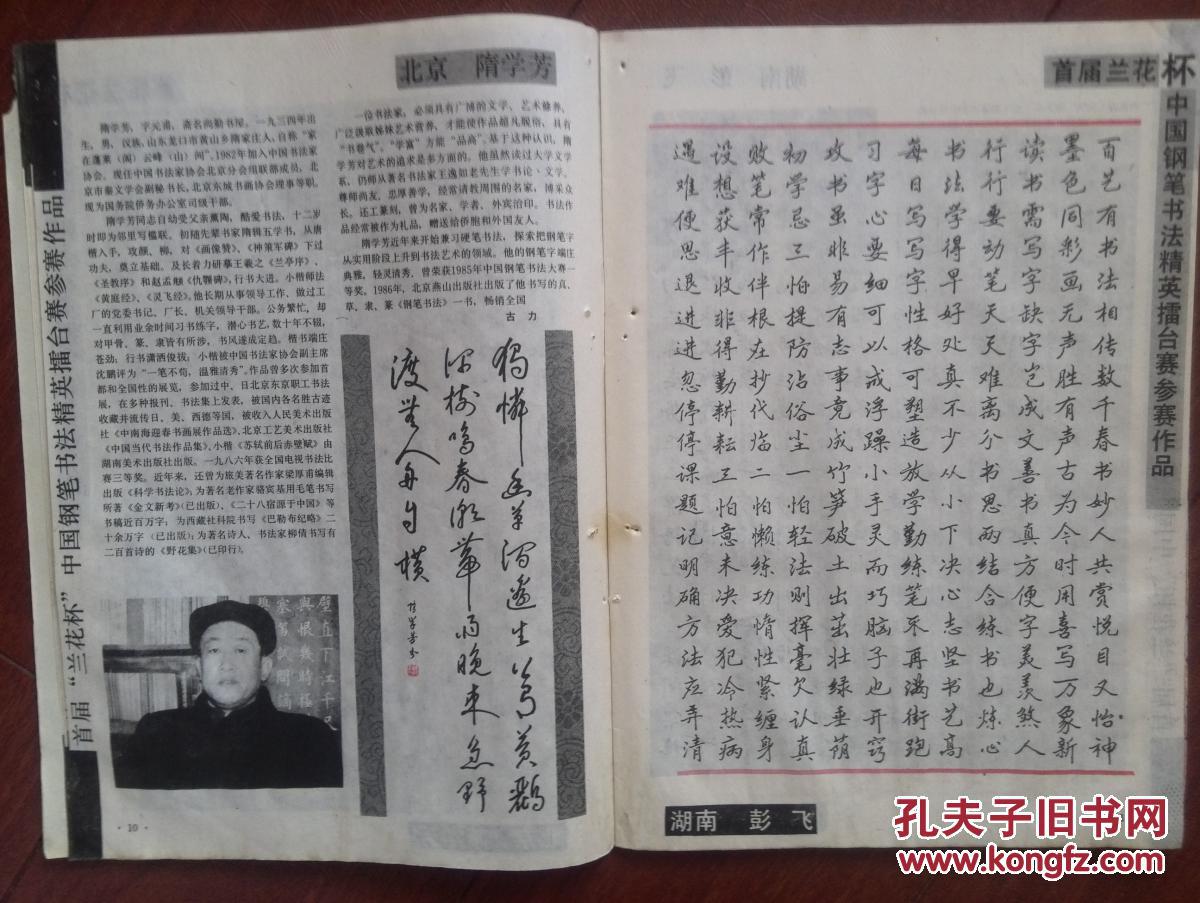 首届“兰花杯”中国钢笔书法精英擂台赛参赛作品
北京 隋学芳
隋学芳,字元甫,斋名尚勤书屋。一九三四年出
生,男,汉族,山东龙口市黄山乡隋家庄人,自称“家
在蓬莱(阁)云峰(山)间”。1982年加入中国书法家
协会。现任中国书法家协会北京分会组联部成员,北
京市秦文学会副秘书长,北京东城书画协会理事等职。
现为国务院侨务办公室司级干部。
隋学芳同志自幼受父亲薰陶,酷爱书法,十二岁
时即为邻里写楹联。初随先辈书家隋辑五学书,从唐
楷入手,攻颜、柳,对《画像赞》、《神策军碑》下过
功夫,奠立基础。及长着力研摹王羲之《兰亭序》、
《圣教序》和赵孟頫《仇锷碑》,行书大进。小楷师法
《黄庭经》、《灵飞经》。他长期从事领导工作、做过工
厂的党委书记、厂长、机关领导干部。公务繁忙,却
一直利用业余时间习书练字,潜心书艺,数十年不辍,
对甲骨、篆、隶皆有所涉,书风遂成定趋。楷书端庄
苍劲;行书潇洒俊拔;小楷被中国书法家协会副主席
沈鹏评为“一笔不苟,温雅清秀”。作品曾多次参加首
都和全国性的展览,参加过中、日北京东京职工书法
展,在多种报刊、书法集上发表,被国内各名胜古迹
收藏并流传日、美、西德等国,被收入人民美术出版
社《中南海迎春书画展作品选》、北京工艺美术出版社
《中国当代书法作品集》。小楷《苏轼前后赤壁赋》由
湖南美术出版社出版。一九八六年获全国电视书法比
赛三等奖。近年来,还曾为旅美著名作家梁厚甫编辑
出版《科学书法论》;为著名老作家骆宾基用毛笔书写
所著《金文新考》(已出版)、《二十八宿源于中国》等
书稿近百万字;为西藏社科院书写《巴勒布纪略》二
十余万字(已出版);为著名诗人、书法家柳倩书写有
二百首诗的《野花集》(已印行)。
一位书法家,必须具有广博的文学、艺术修养,
广泛汲取姊妹艺术营养,才能使作品超凡脱俗,具有
“书卷气”。“学富”方能“品高”。基于这种认识,隋
学芳对艺术的追求是多方面的。他虽然读过大学文学
系,仍师从著名书法家王逸如老先生学书论、文学。
尊师尚友,忠厚善学,经常请教周围的名家,博采众
长。还工篆刻,曾为名家、学者、外宾治印。书法作
品经常被作为礼品,赠送给侨胞和外国友人。
隋学芳近年来开始兼习硬笔书法,探索把钢笔字
从实用阶段上升到书法艺术的领域。他的钢笔字端庄
典雅,轻灵清秀,曾荣获1985年中国钢笔书法大赛一
等奖。1986年,北京燕山出版社出版了他书写的真、
草、隶、篆《钢笔书法》一书,畅销全国
古 力
独怜幽草涧边生上有黄鹂
深树鸣春潮带雨晚来急野
渡无人舟自横
隋学芳书
壁直下江千尺
與恨幾時極
· 10 ·
首届兰花杯中国钢笔书法精英擂台赛参赛作品
百艺有书法相传数千春书妙人共赏悦目又怡神
墨色同彩画无声胜有声古为今时用喜写万象新
读书需写字缺字岂成文善书真方便字美羡煞人
行行要动笔天天难离分书思两结合练书也炼心
书法学得早好处真不少从小下决心志坚书艺高
每日写写字性格可塑造放学勤练笔不再满街跑
习字心要细可以戒浮躁小手灵而巧脑子也开窍
攻书虽非易有志事竟成竹笋破土出茁壮绿垂荫
初学忌三怕提防沾俗尘一怕轻法则挥毫欠认真
败笔常作伴根在抄代临二怕懒练功惰性紧缠身
设想获丰收非得勤耕耘三怕意未决爱犯冷热病
遇难便思退进进忽停停课题记明确方法应弄清
湖南 彭飞
孔夫子旧书网
www.kongfz.com